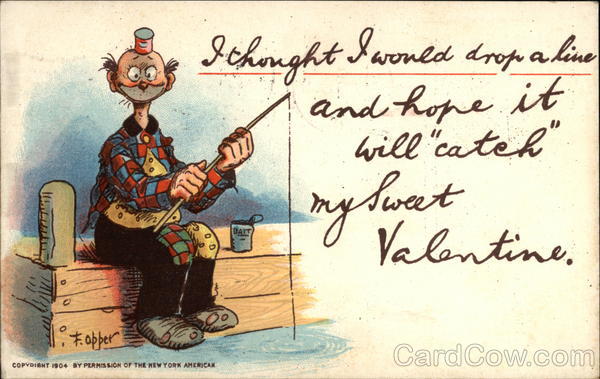 I thought I would drop a line
and hope it
will "catch"
my Sweet
Valentine.
BAIT
F. Opper
COPYRIGHT 1904 BY PERMISSION OF THE NEW YORK AMERICAN
CardCow.com